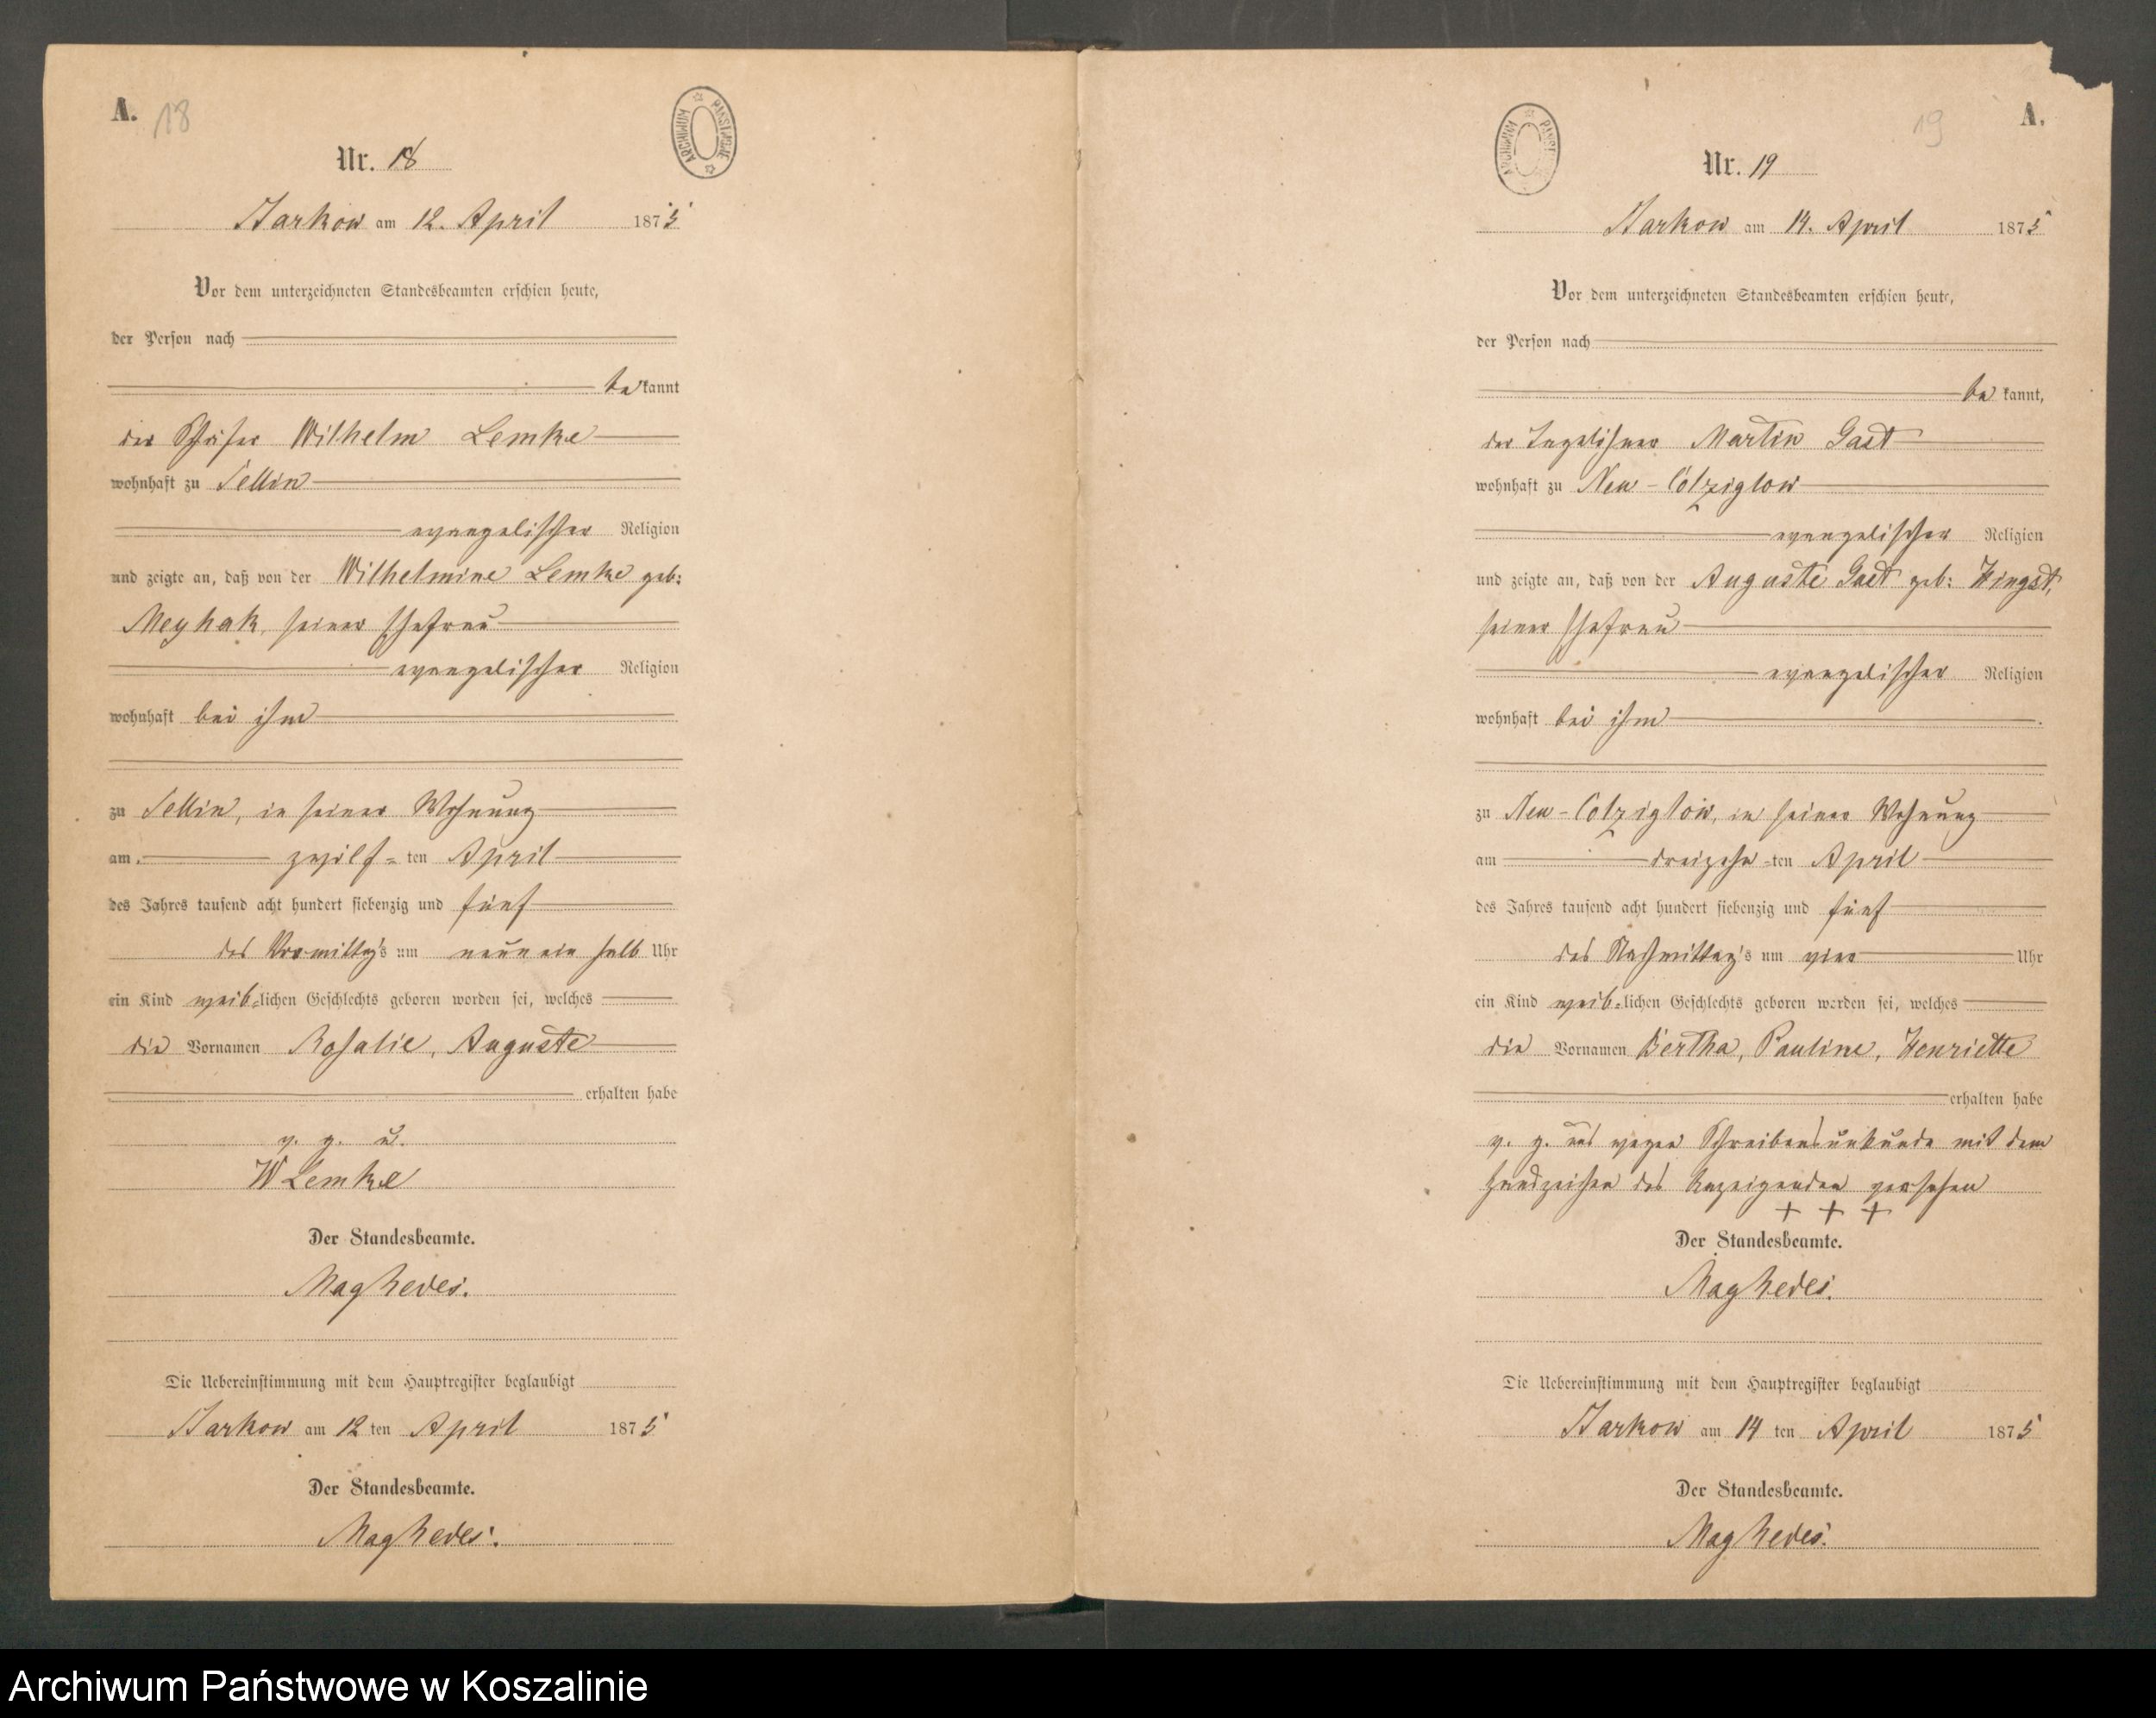 A. 18
ARCHIWUM PAŃSTWOWE
Nr. 18
Starkow am 12. April 1875
Vor dem unterzeichneten Standesbeamten erschien heute,
der Person nach
be kannt
der Schäfer Wilhelm Lemke
wohnhaft zu Sellin
evangelischer Religion
und zeigte an, daß von der Wilhelmine Lemke geb:
Meyhak, seiner Ehefrau
evangelischer Religion
wohnhaft bei ihm
zu Sellin, in seiner Wohnung
am zwölf= ten April
des Jahres tausend acht hundert siebenzig und fünf
des Vormittag's um neun ein halb Uhr
ein Kind weib=lichen Geschlechts geboren worden sei, welches
die Vornamen Rosalie, Auguste
erhalten habe
v. g. u.
W Lemke
Der Standesbeamte.
Der Uebereinstimmung mit dem Hauptregister beglaubigt
Starkow am 12 ten April 1875
Der Standesbeamte.
19 A.
ARCHIWUM
Nr. 19
Starkow am 14. April 1875
Vor dem unterzeichneten Standesbeamten erschien heute,
der Person nach
be kannt,
der Tagelöhner Martin Gast
wohnhaft zu Neu-Colziglow
evangelischer Religion
und zeigte an, daß von der Auguste Gast geb: Hingst,
seiner Ehefrau
evangelischer Religion
wohnhaft bei ihm
zu Neu-Colziglow, in seiner Wohnung
am dreizehn =ten April
des Jahres tausend acht hundert siebenzig und fünf
des Nachmittag's um vier Uhr
ein Kind weib=lichen Geschlechts geboren worden sei, welches
die Vornamen Bertha, Pauline, Henriette
erhalten habe
v. g. und wegen Schreibensunkunde mit dem
Handzeichen des Anzeigenden versehen
+ + +
Der Standesbeamte.
Die Uebereinstimmung mit dem Hauptregister beglaubigt
Starkow am 14 ten April 1875
Der Standesbeamte.
Archiwum Państwowe w Koszalinie